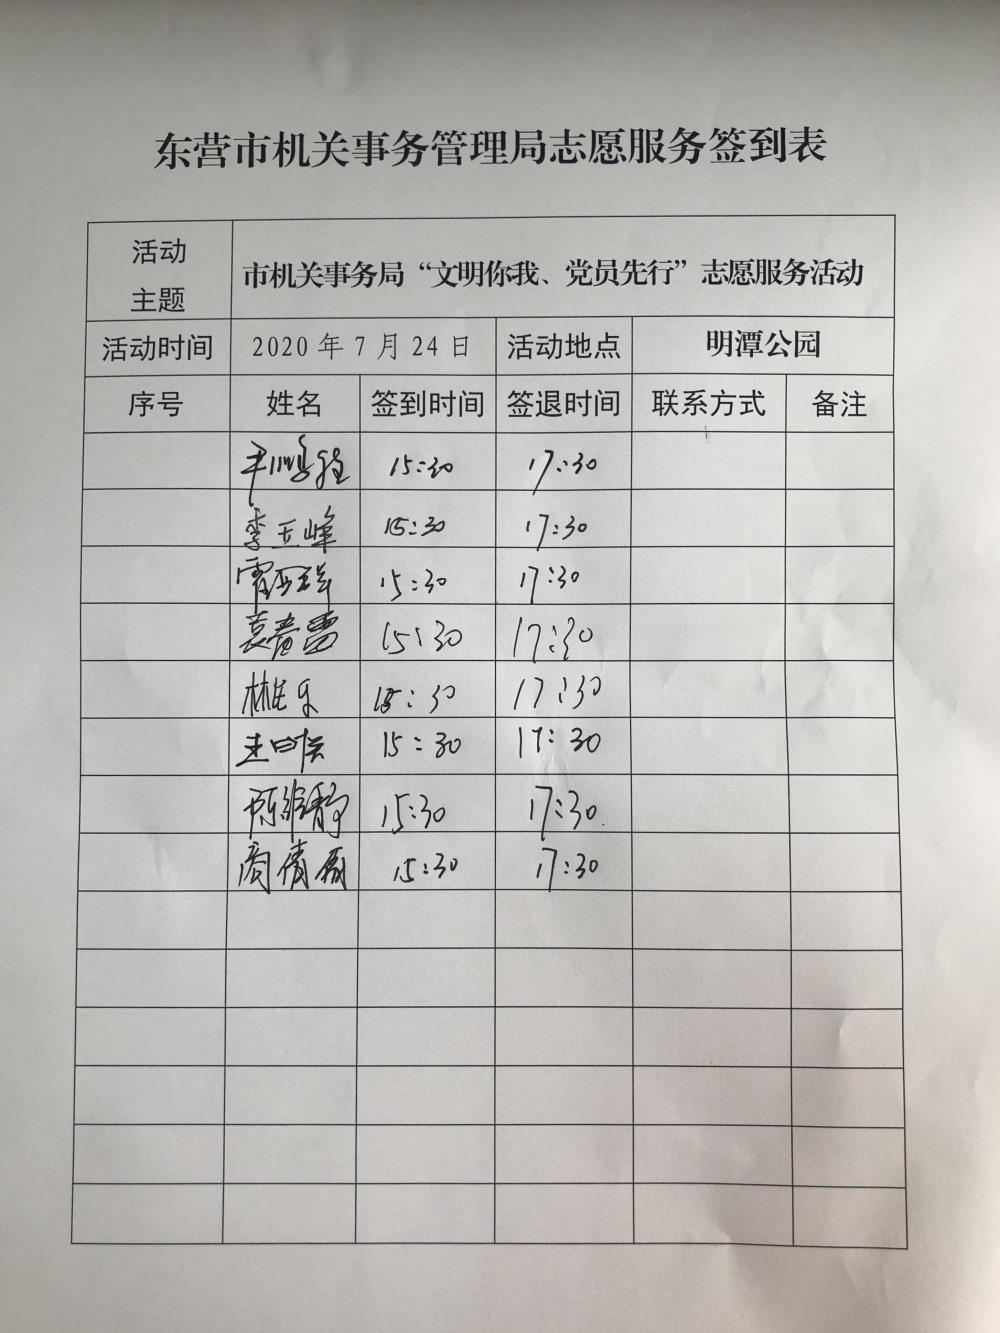 东营市机关事务管理局志愿服务签到表
活动
主题
市机关事务局“文明你我、党员先行”志愿服务活动
活动时间 2020年7月24日 活动地点 明潭公园
序号 姓名 签到时间 签退时间 联系方式 备注
15:30 17:30
李玉峰 15:30 17:30
15:30 17:30
袁春雷 15:30 17:30
15:30 17:30
15:30 17:30
15:30 17:30
商倩 15:30 17:30